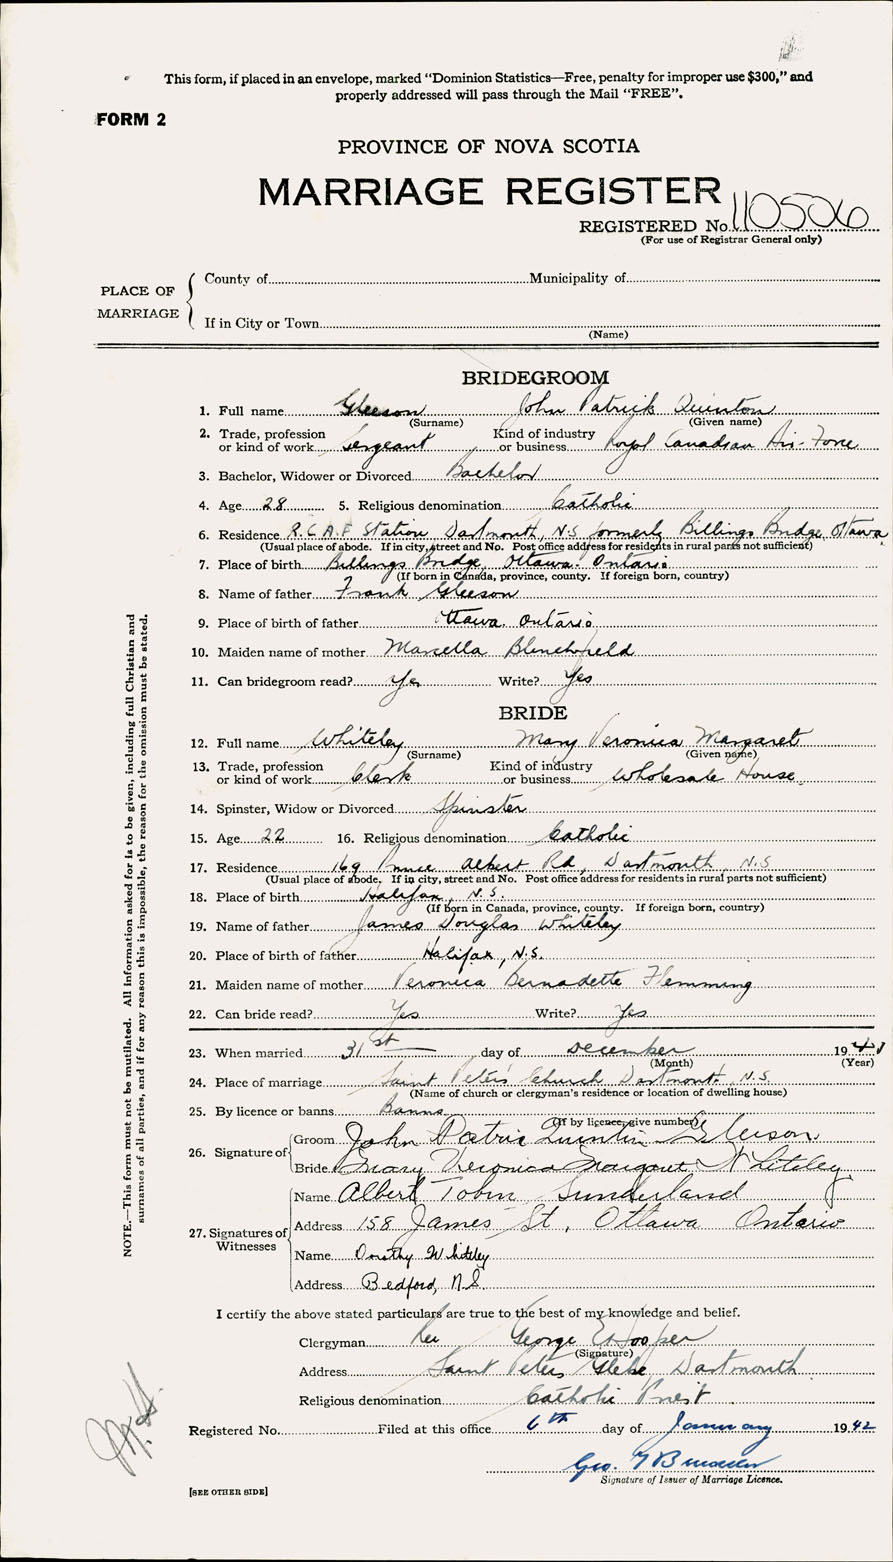 This form, if placed in an envelope, marked "Dominion Statistics—Free, penalty for improper use $300," and
properly addressed will pass through the Mail "FREE".
FORM 2
PROVINCE OF NOVA SCOTIA
MARRIAGE REGISTER
REGISTERED No. 110506
(For use of Registrar General only)
PLACE OF MARRIAGE
County of Municipality of
If in City or Town
(Name)
BRIDEGROOM
1. Full name Gleeson John Patrick Quinton
(Surname) (Given name)
2. Trade, profession or kind of work Sergeant Kind of industry or business Royal Canadian Air-Force
3. Bachelor, Widower or Divorced Bachelor
4. Age 28 5. Religious denomination Catholic
6. Residence R.C.A.F Station, Dartmouth, N.S formerly Billings Bridge, Ottawa
(Usual place of abode. If in city, street and No. Post office address for residents in rural parts not sufficient)
7. Place of birth Billings Bridge, Ottawa. Ontario
(If born in Canada, province, county. If foreign born, country)
8. Name of father Frank Gleeson
9. Place of birth of father Ottawa, Ontario
10. Maiden name of mother Marcella
11. Can bridegroom read? Yes Write? Yes
BRIDE
12. Full name Whiteley Mary Veronica Margaret
(Surname) (Given name)
13. Trade, profession or kind of work Clerk Kind of industry or business Wholesale House
14. Spinster, Widow or Divorced Spinster
15. Age 22 16. Religious denomination Catholic
17. Residence 169 Prince Albert Rd, Dartmouth, N.S
(Usual place of abode. If in city, street and No. Post office address for residents in rural parts not sufficient)
18. Place of birth Halifax, N.S.
(If born in Canada, province, county. If foreign born, country)
19. Name of father James Douglas Whiteley
20. Place of birth of father Halifax, N.S.
21. Maiden name of mother Veronica Bernadette Flemming
22. Can bride read? Yes Write? Yes
23. When married 31st day of December 1941
(Month) (Year)
24. Place of marriage Saint Peter's Church Dartmouth N.S.
(Name of church or clergyman's residence or location of dwelling house)
25. By licence or banns Banns
(If by licence, give number)
26. Signature of
Groom John Patric Quintin Gleeson
Bride Mary Veronica Margaret Whiteley
27. Signatures of Witnesses
Name Albert Tobin Sunderland
Address 158 James St, Ottawa Ontario
Name Dorothy Whiteley
Address Bedford, N.S.
I certify the above stated particulars are true to the best of my knowledge and belief.
Clergyman Rev George
(Signature)
Address Saint Peter's Glebe Dartmouth
Religious denomination Catholic Priest
Registered No. Filed at this office 6th day of January 1942
Geo.
Signature of Issuer of Marriage Licence.
[SEE OTHER SIDE]
NOTE.—This form must not be mutilated. All information asked for is to be given, including full Christian and
surnames of all parties, and if for any reason this is impossible, the reason for the omission must be stated.